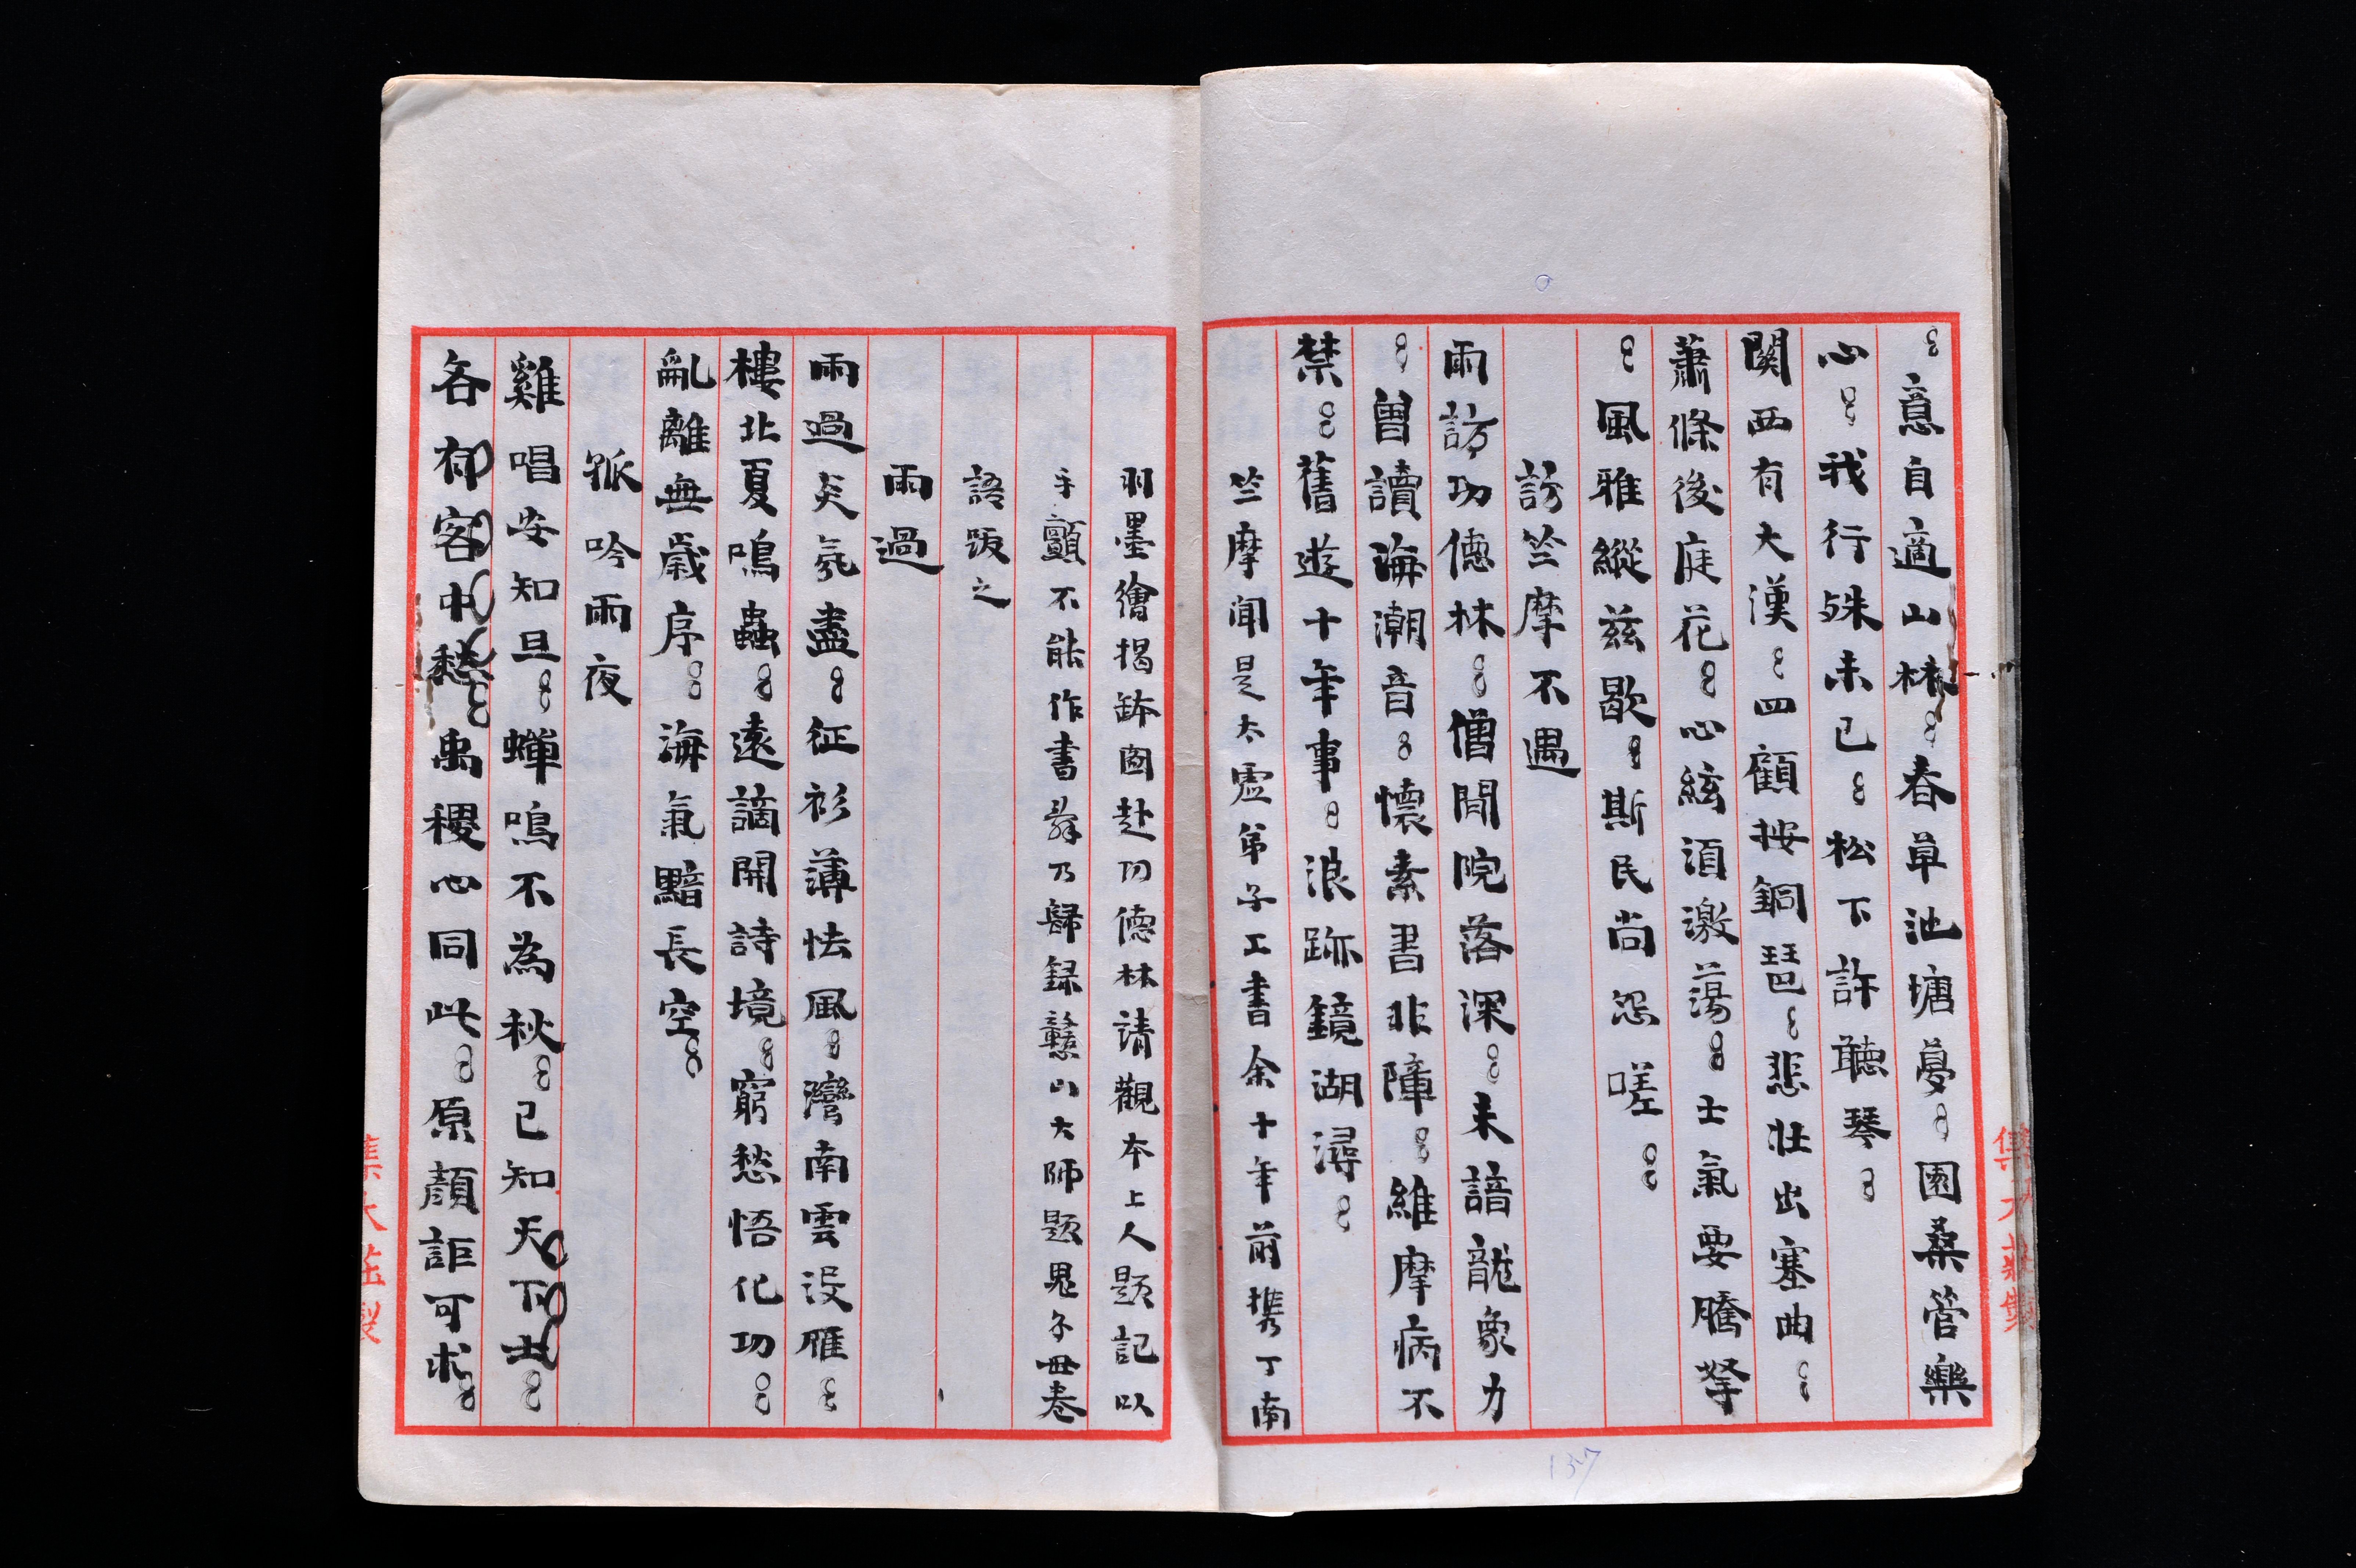 意自適山林春草池塘夢園桑管樂
心我行殊未已松下許聽琴
関西有大漢四顧按銅琶悲壯出塞曲
蕭條後庭花心絃須激蕩士氣要騰拏
風雅縱茲歇斯民尚怨嗟
訪竺摩不遇
雨訪功德林僧閒院落深未諳龍象力
曾讀海潮音懷素書非障維摩病不
禁舊遊十年事浪跡鏡湖潯
竺摩聞是太虛弟子工書余十年前攜丁南
羽墨繪揭鉢圖赴功德林請觀本上人題記以
手顫不能作書辭乃歸録憨山大師題鬼子母卷
語跋之
雨過
雨過炎氛盡征衫薄怯風灣南雲沒雁
樓北夏鳴蟲遠謫開詩境窮愁悟化功
亂離無歲序海氣黯長空
孤吟雨夜
雞唱安知旦蟬鳴不為秋已知天下士
各有客中愁禹稷心同此原顏詎可求
集大莊製
集大莊製
137